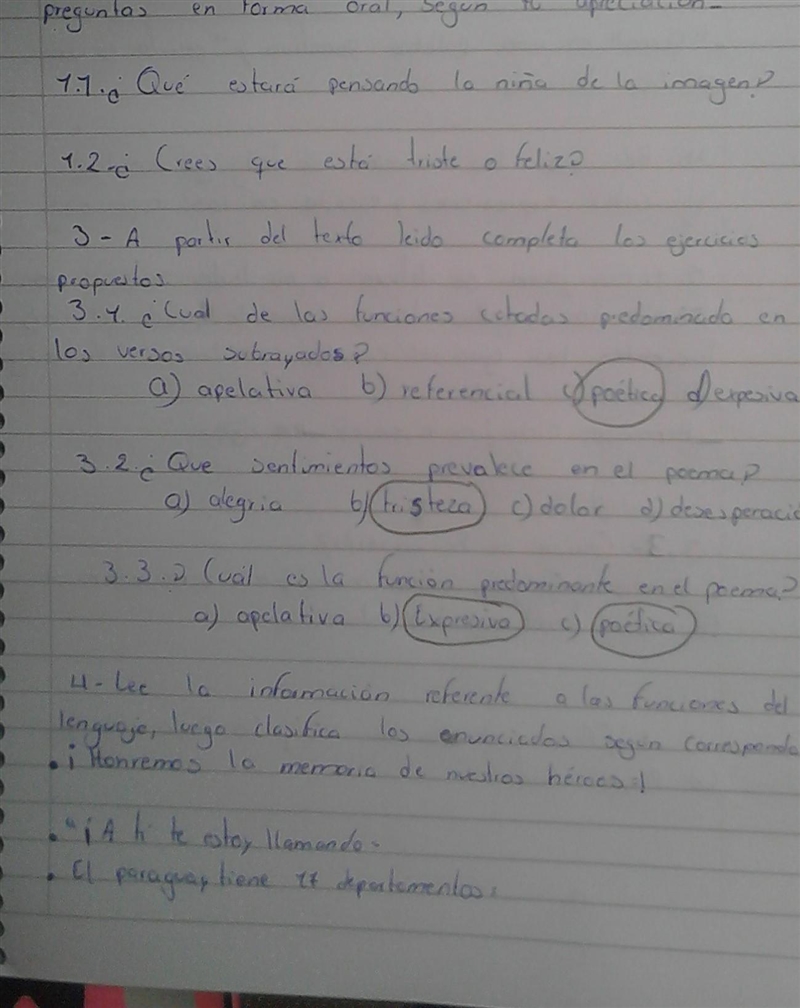 preguntas en forma oral, según tu apreciación-
1.1.¿ Qué estará pensando la niña de la imagen?
1.2-¿ Crees que está triste o feliz?
3- A partir del texto leido completa los ejercicios
propuestos
3.1. ¿Cual de las funciones citadas predominada en
los versos subrayados?
a) apelativa b) referencial c) poética d) expesiva
3.2.¿ Que sentimientos prevalece en el poema?
a) alegria b) tristeza c) dolor d) desesperació
3.3.¿ Cuál es la función predominante en el poema?
a) apelativa b) Expresiva c) poética
4- Lee la información referente a las funciones del
lenguaje, luego clasifica los enunciados según corresponda
• ¡Honremos la memoria de nuestros héroes!
• "¡A ti te estoy llamando-
• El paraguay tiene 17 departamentos.